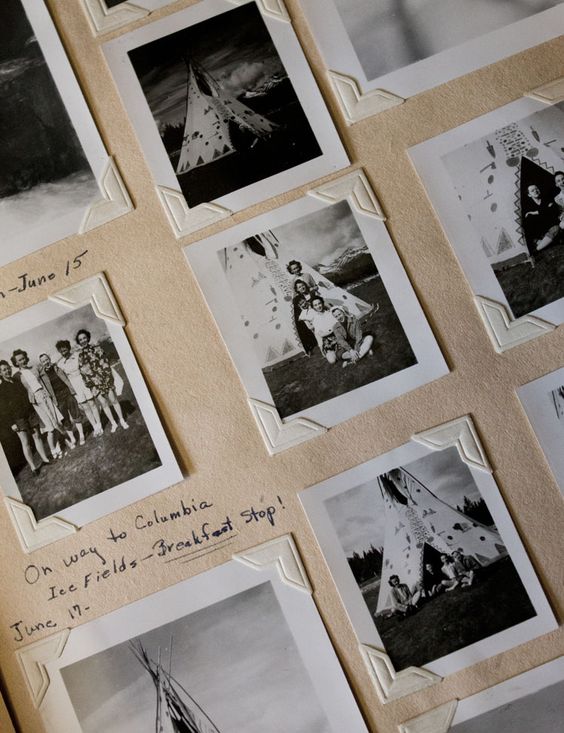 -June 15
On way to Columbia
Ice Fields - Breakfast Stop!
June 17-